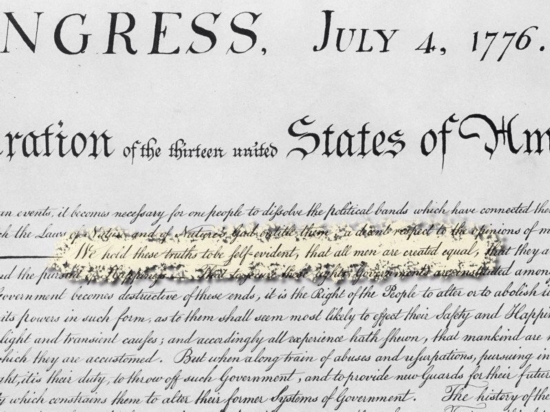 NGRESS, JULY 4, 1776.
ration of the thirteen united States of Am
an events, it becomes neceſsary for one people to diſsolve the political bands which have connected the
the Laws of Nature and of Nature's God entitle them, a decent respect to the opinions of m
We hold these truths to be ſelf-evident, that all men are created equal, that they a
the Governments are instituted amon
overnment becomes destructive of these ends, it is the Right of the People to alter or to abolish i
its powers in such form, as to them shall seem most likely to effect their Safety and Happi
light and transient cauſes; and accordingly all experience hath ſhewn, that mankind are m
hich they are accustomed. But when a long train of abuses and uſurpations, pursuing in
ht, it is their duty, to throw off such Government, and to provide new Guards for their futur
y which constrains them to alter their former Systems of Government. The history of the